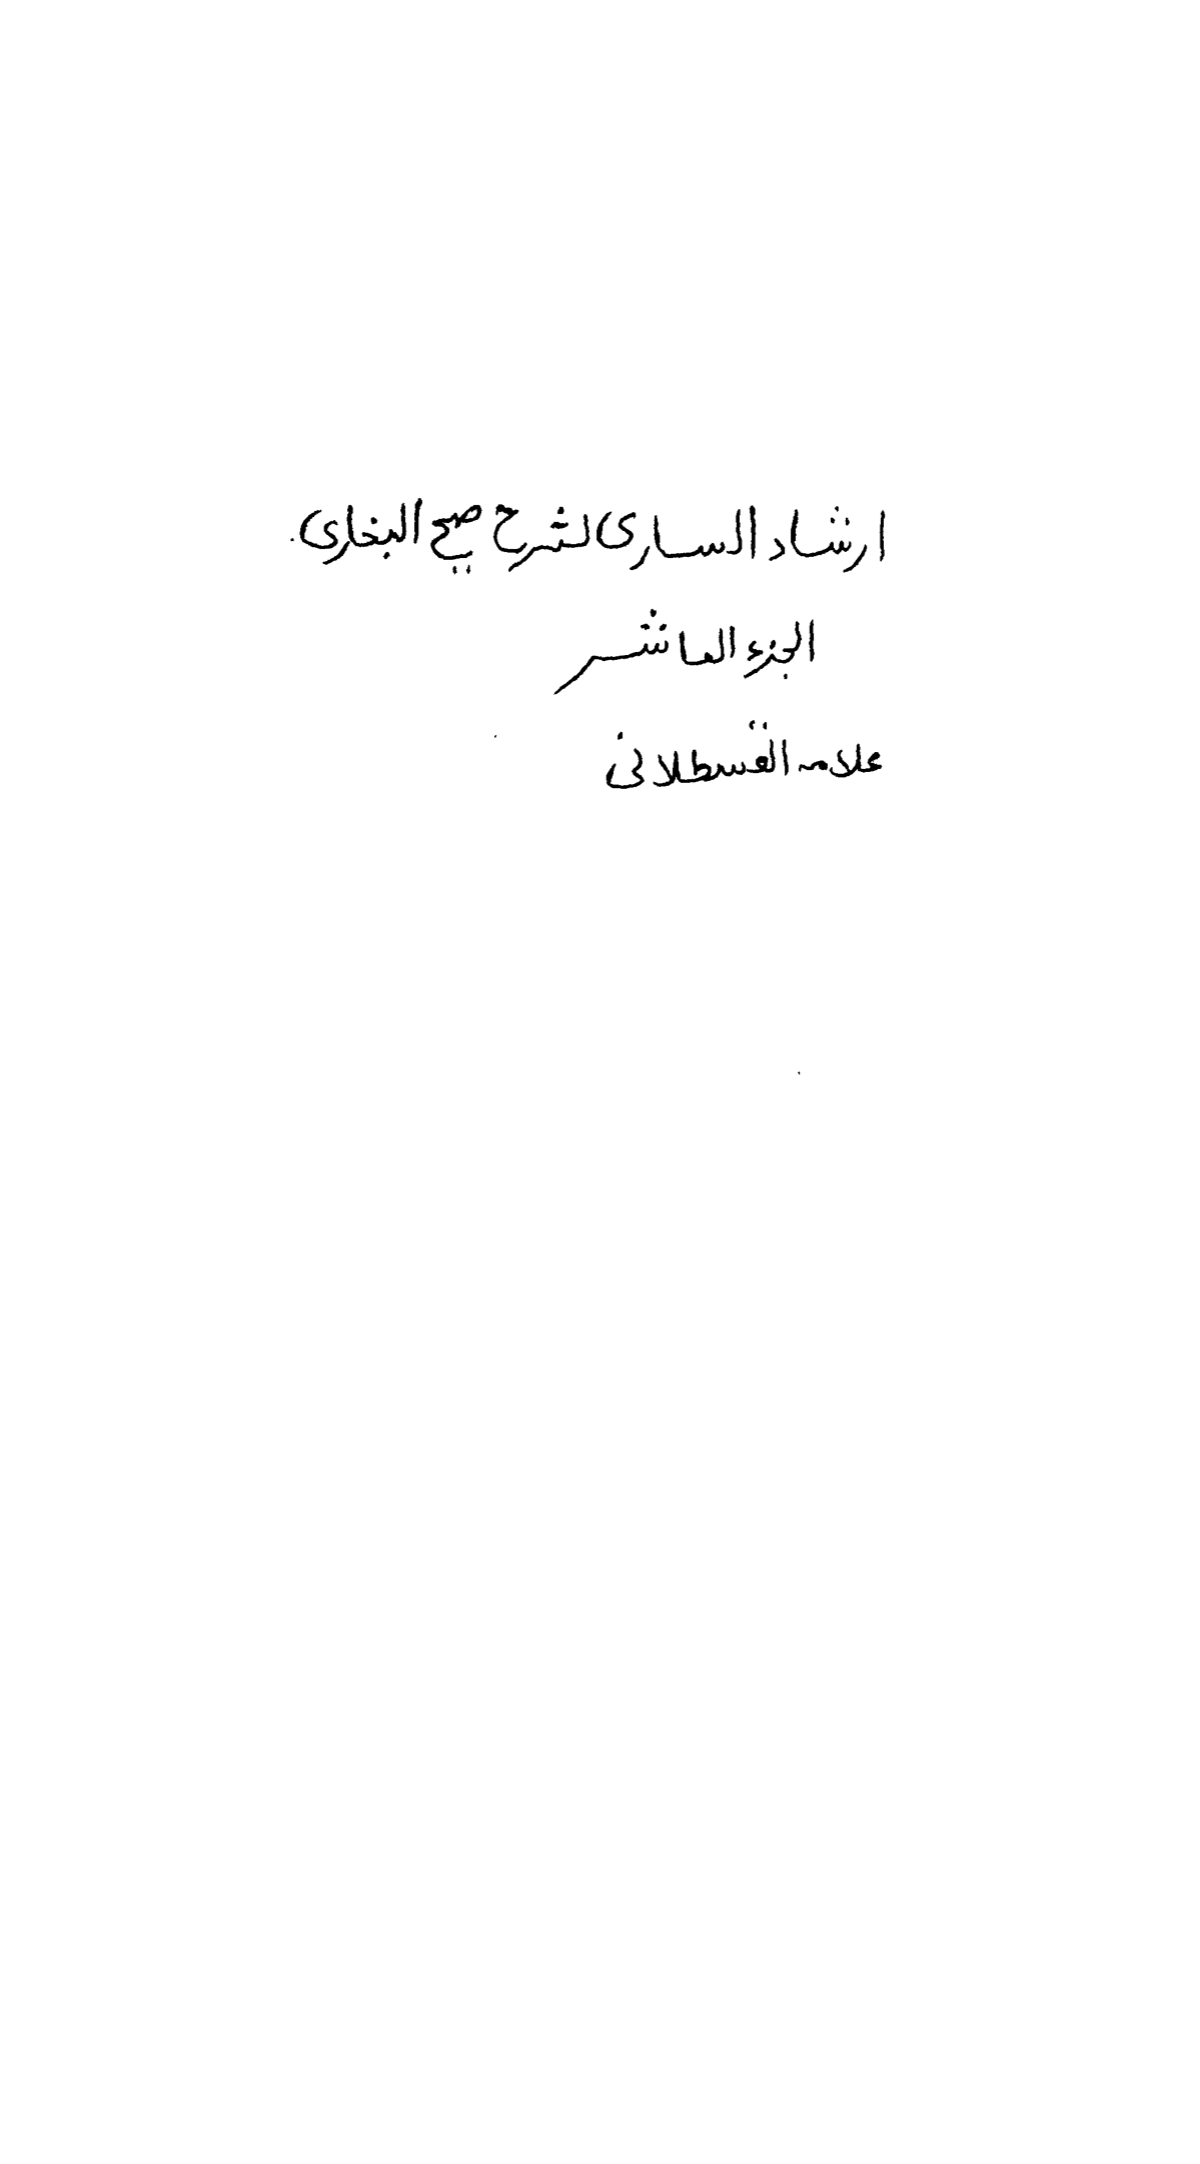 ارشاد السارى لشرح صحيح البخارى
الجزء العاشر
علامه القسطلانى